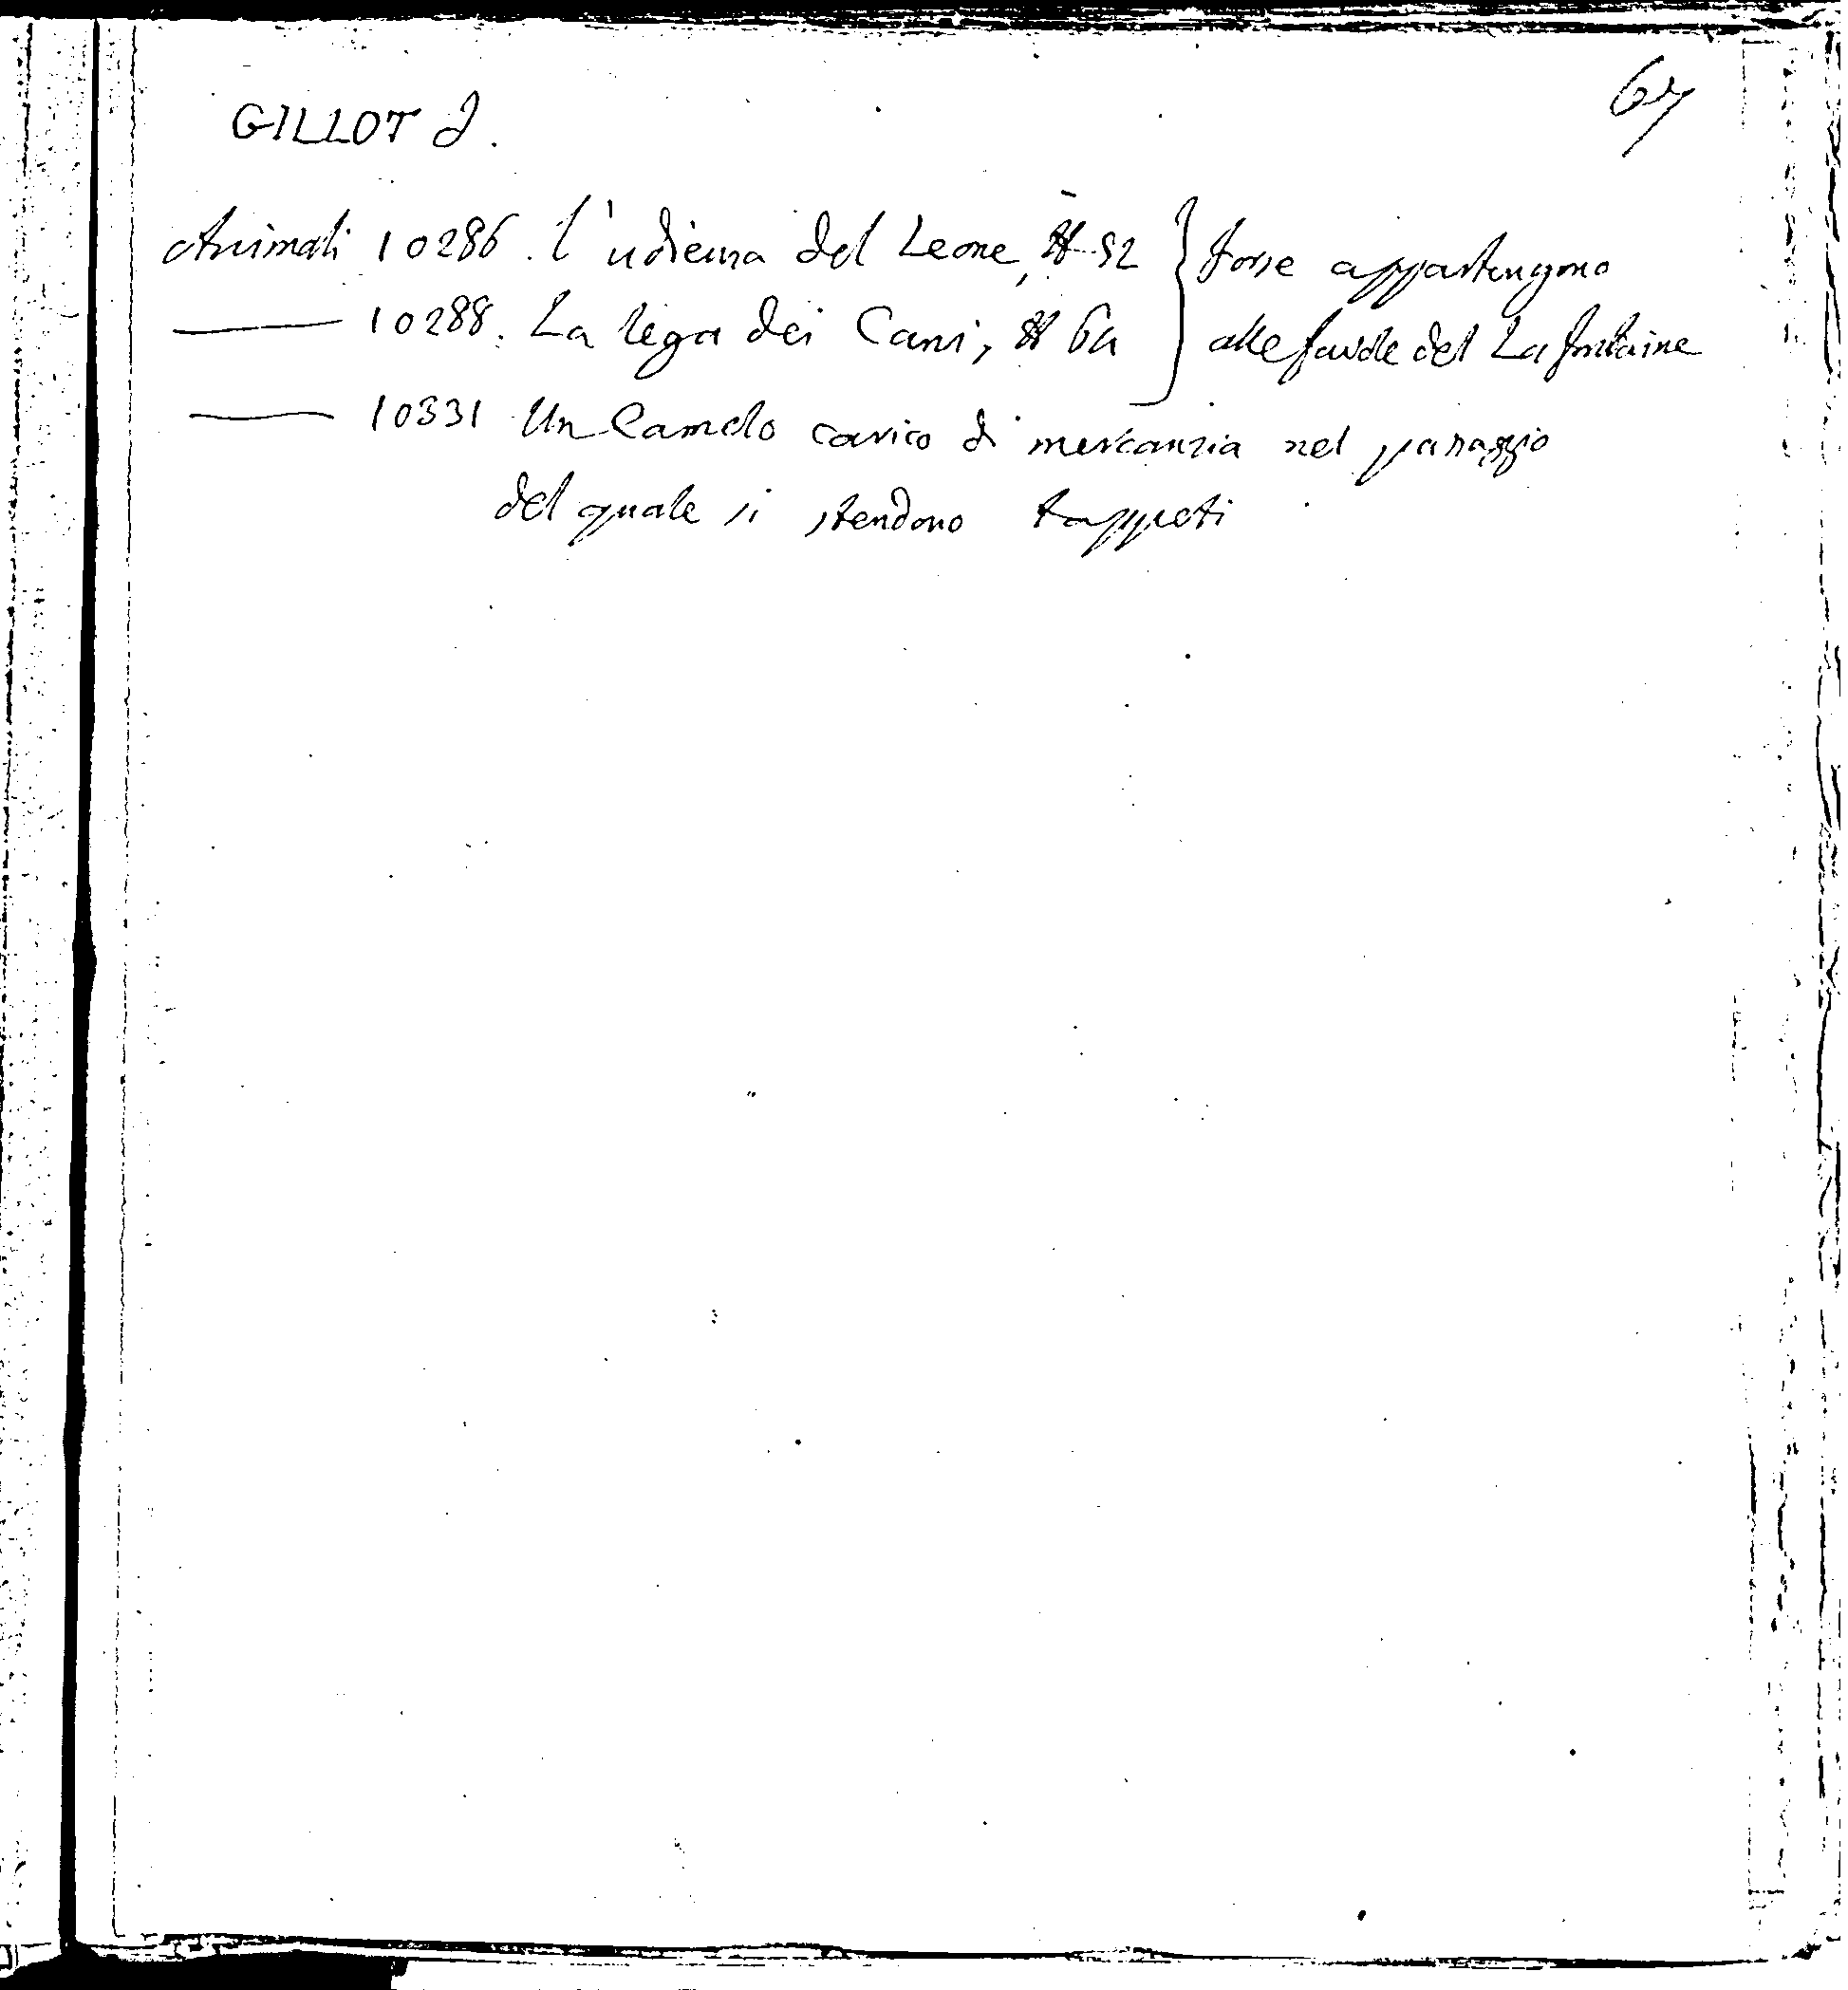 67
GILLOT J.
Animali 10286. l'udienza del Leone, # 52 } forse appartengono
—— 10288. La lega dei Cani, # 64 } alle favole del La fontaine
—— 10331 Un Camelo carico di mercanzia nel passaggio
del quale si stendono tappeti